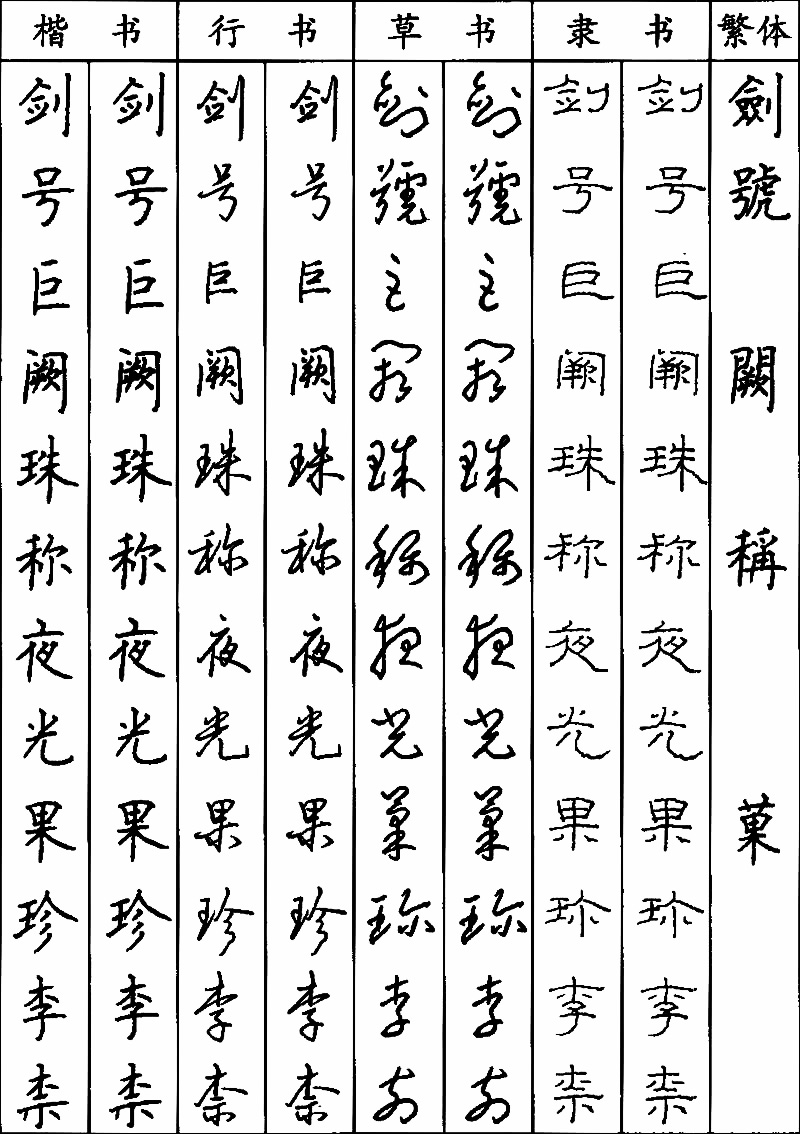 楷书 行书 草书 隶书 繁体
剑 剑 剑 剑 剑 剑 剑 剑 劍
号 号 号 号 號 號 号 号 號
巨 巨 巨 巨 巨 巨 巨 巨
阙 阙 阙 阙 阙 阙 阙 阙 闕
珠 珠 珠 珠 珠 珠 珠 珠
称 称 称 称 称 称 称 称 稱
夜 夜 夜 夜 夜 夜 夜 夜
光 光 光 光 光 光 光 光
果 果 果 果 菓 菓 果 果 菓
珍 珍 珍 珍 珎 珎 珎 珎
李 李 李 李 李 李 李 李
柰 柰 柰 柰 柰 柰 柰 柰